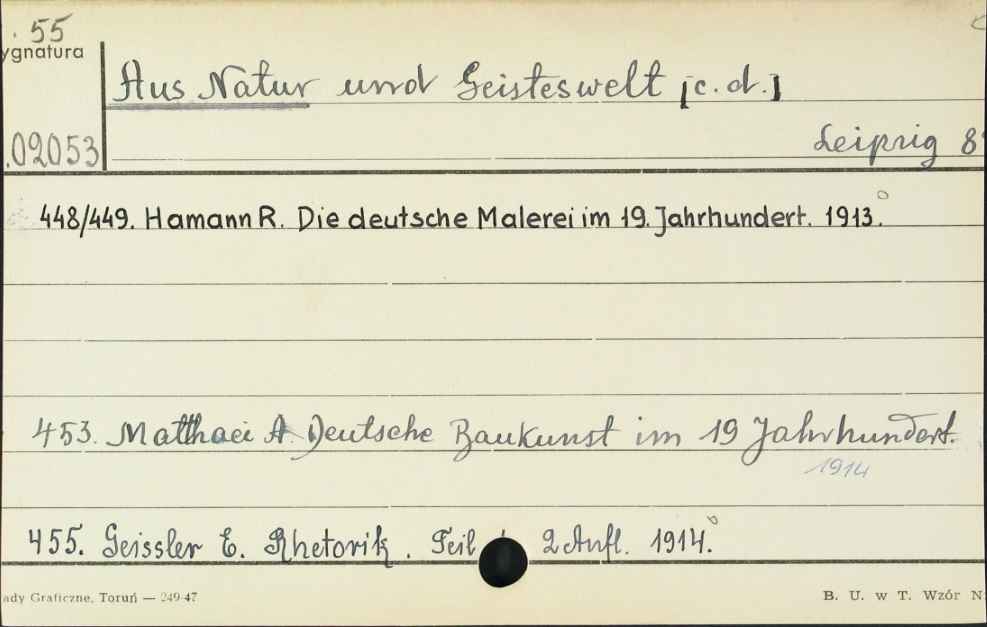 55
ygnatura
Aus Natur und Geisteswelt [c.d.]
.02053
Leipzig 8°
448/449. Hamann R. Die deutsche Malerei im 19. Jahrhundert. 1913.
453. Matthaei A. Deutsche Baukunst im 19 Jahrhundert.
1914
455. Geissler E. Rhetorik. Teil 2 Aufl. 1914.
ady Graficzne, Toruń — 249-47
B. U. w T. Wzór N